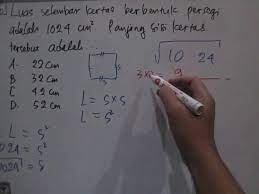 Luas selembar kertas berbentuk persegi
adalah 1024 cm². Panjang sisi kertas
tersebut adalah....
A. 22 cm
B. 32 cm
C. 42 cm
D. 52 cm
s
s
L = s × s
L = s²
L = s²
1024 = s²
= s
√ 10 24
3 × 9